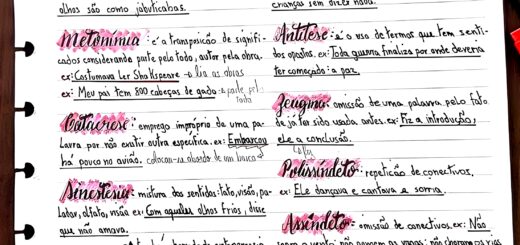 olhos são como jabuticabas.
Metonímia: é a transposição de signifi-
cados considerando parte pelo todo, autor pela obra.
ex: Costumava Ler Shakespeare → lia as obras
ex: Meu pai tem 800 cabeças de gado → parte pelo
todo
Catacrese: emprego impróprio de uma pa-
lavra por não existir outra específica. ex: Embarcou
há pouco no avião. colocou-se a bordo de um barco
Sinestesia: mistura dos sentidos: tato, visão, pa-
ladar, olfato, visão ex: Com aqueles olhos frios, disse
que não amava.
crianças sem dizer nada.
Antítese: é o uso de termos que tem senti-
dos opostos. ex: Toda guerra finaliza por onde deveria
ter começado: a paz.
Zeugma: omissão de uma palavra pelo fato
de já ter sido usada antes. ex: Fiz a introdução,
ele a conclusão.
fez
Polissíndeto: repetição de conectivos,
ex: Ele dançava e cantava e sorria.
Assíndeto: omissão de conectivos. ex: Não